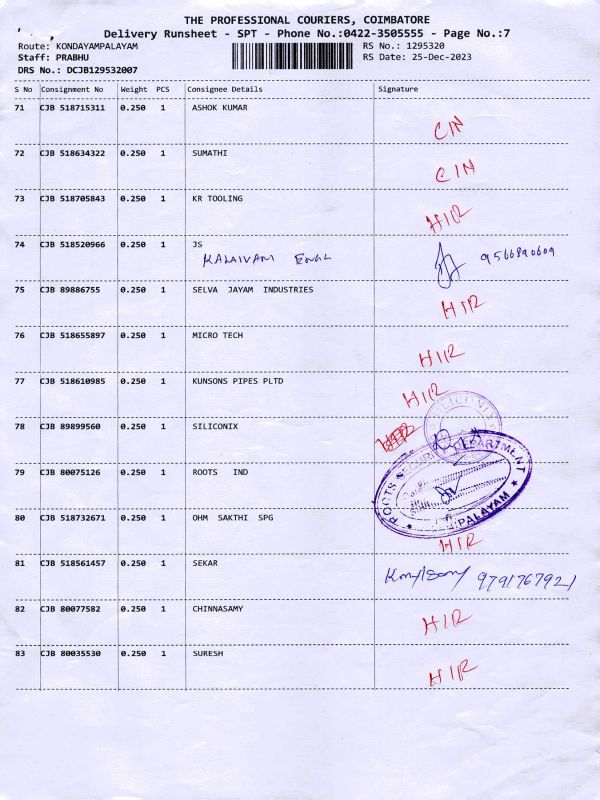 THE PROFESSIONAL COURIERS, COIMBATORE
Delivery Runsheet - SPT - Phone No.:0422-3505555 - Page No.:7
Route: KONDAYAMPALAYAM RS No.: 1295320
Staff: PRABHU RS Date: 25-Dec-2023
DRS No.: DCJB129532007
S No Consignment No Weight PCS Consignee Details Signature
71 CJB 518715311 0.250 1 ASHOK KUMAR
CIN
72 CJB 518634322 0.250 1 SUMATHI
CIN
73 CJB 518705843 0.250 1 KR TOOLING
HIR
74 CJB 518520966 0.250 1 JS
KALAIVANI 9566890609
75 CJB 89886755 0.250 1 SELVA JAYAM INDUSTRIES
HIR
76 CJB 518655897 0.250 1 MICRO TECH
HIR
77 CJB 518610985 0.250 1 KUNSONS PIPES PLTD
HIR
78 CJB 89899560 0.250 1 SILICONIX
SILICONIX
79 CJB 80075126 0.250 1 ROOTS IND
ROOTS SECURITY DEPARTMENT
PALAYAM
80 CJB 518732671 0.250 1 OHM SAKTHI SPG
HIR
81 CJB 518561457 0.250 1 SEKAR
9791767921
82 CJB 80077582 0.250 1 CHINNASAMY
HIR
83 CJB 80035530 0.250 1 SURESH
HIR